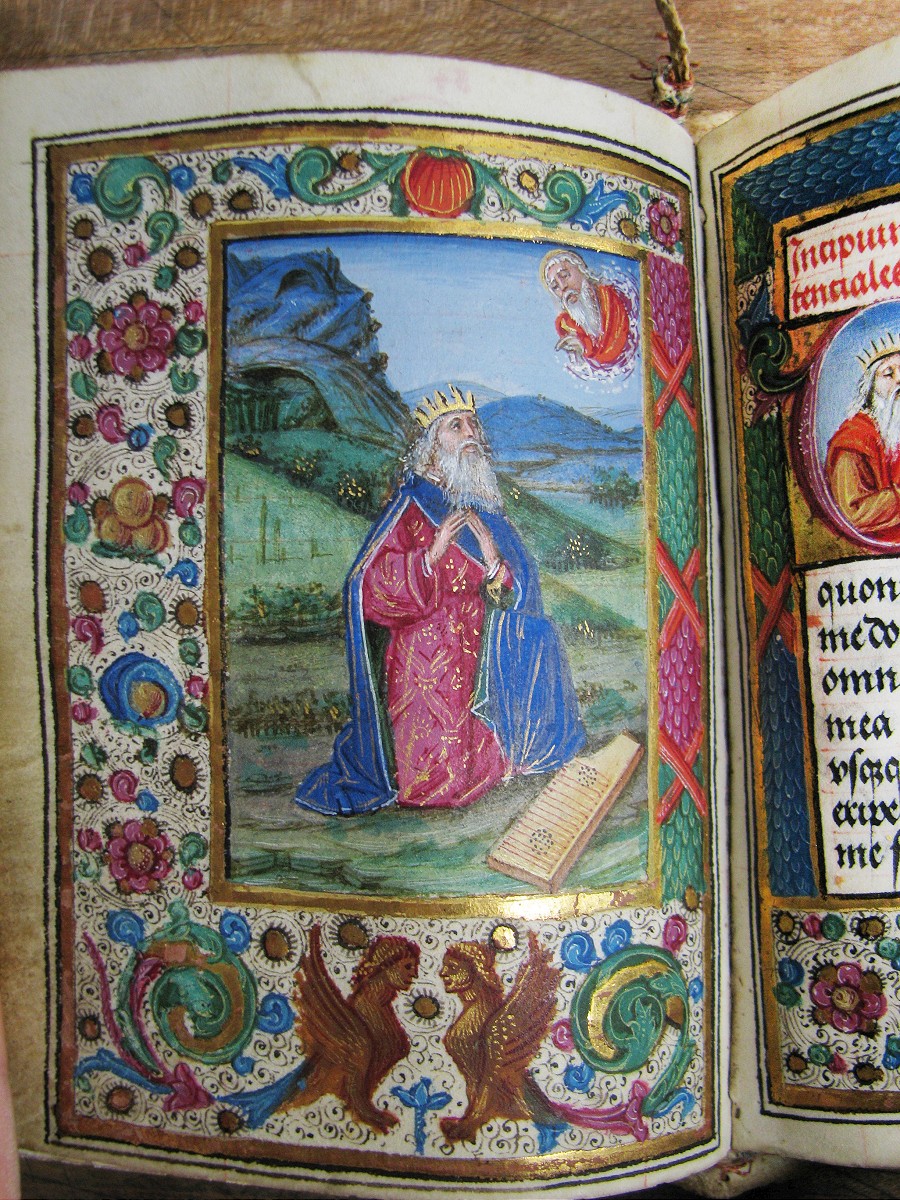 Incipiun
tenciales
quoni
me do
omn
mea
vsqꝫq
eripe
me s